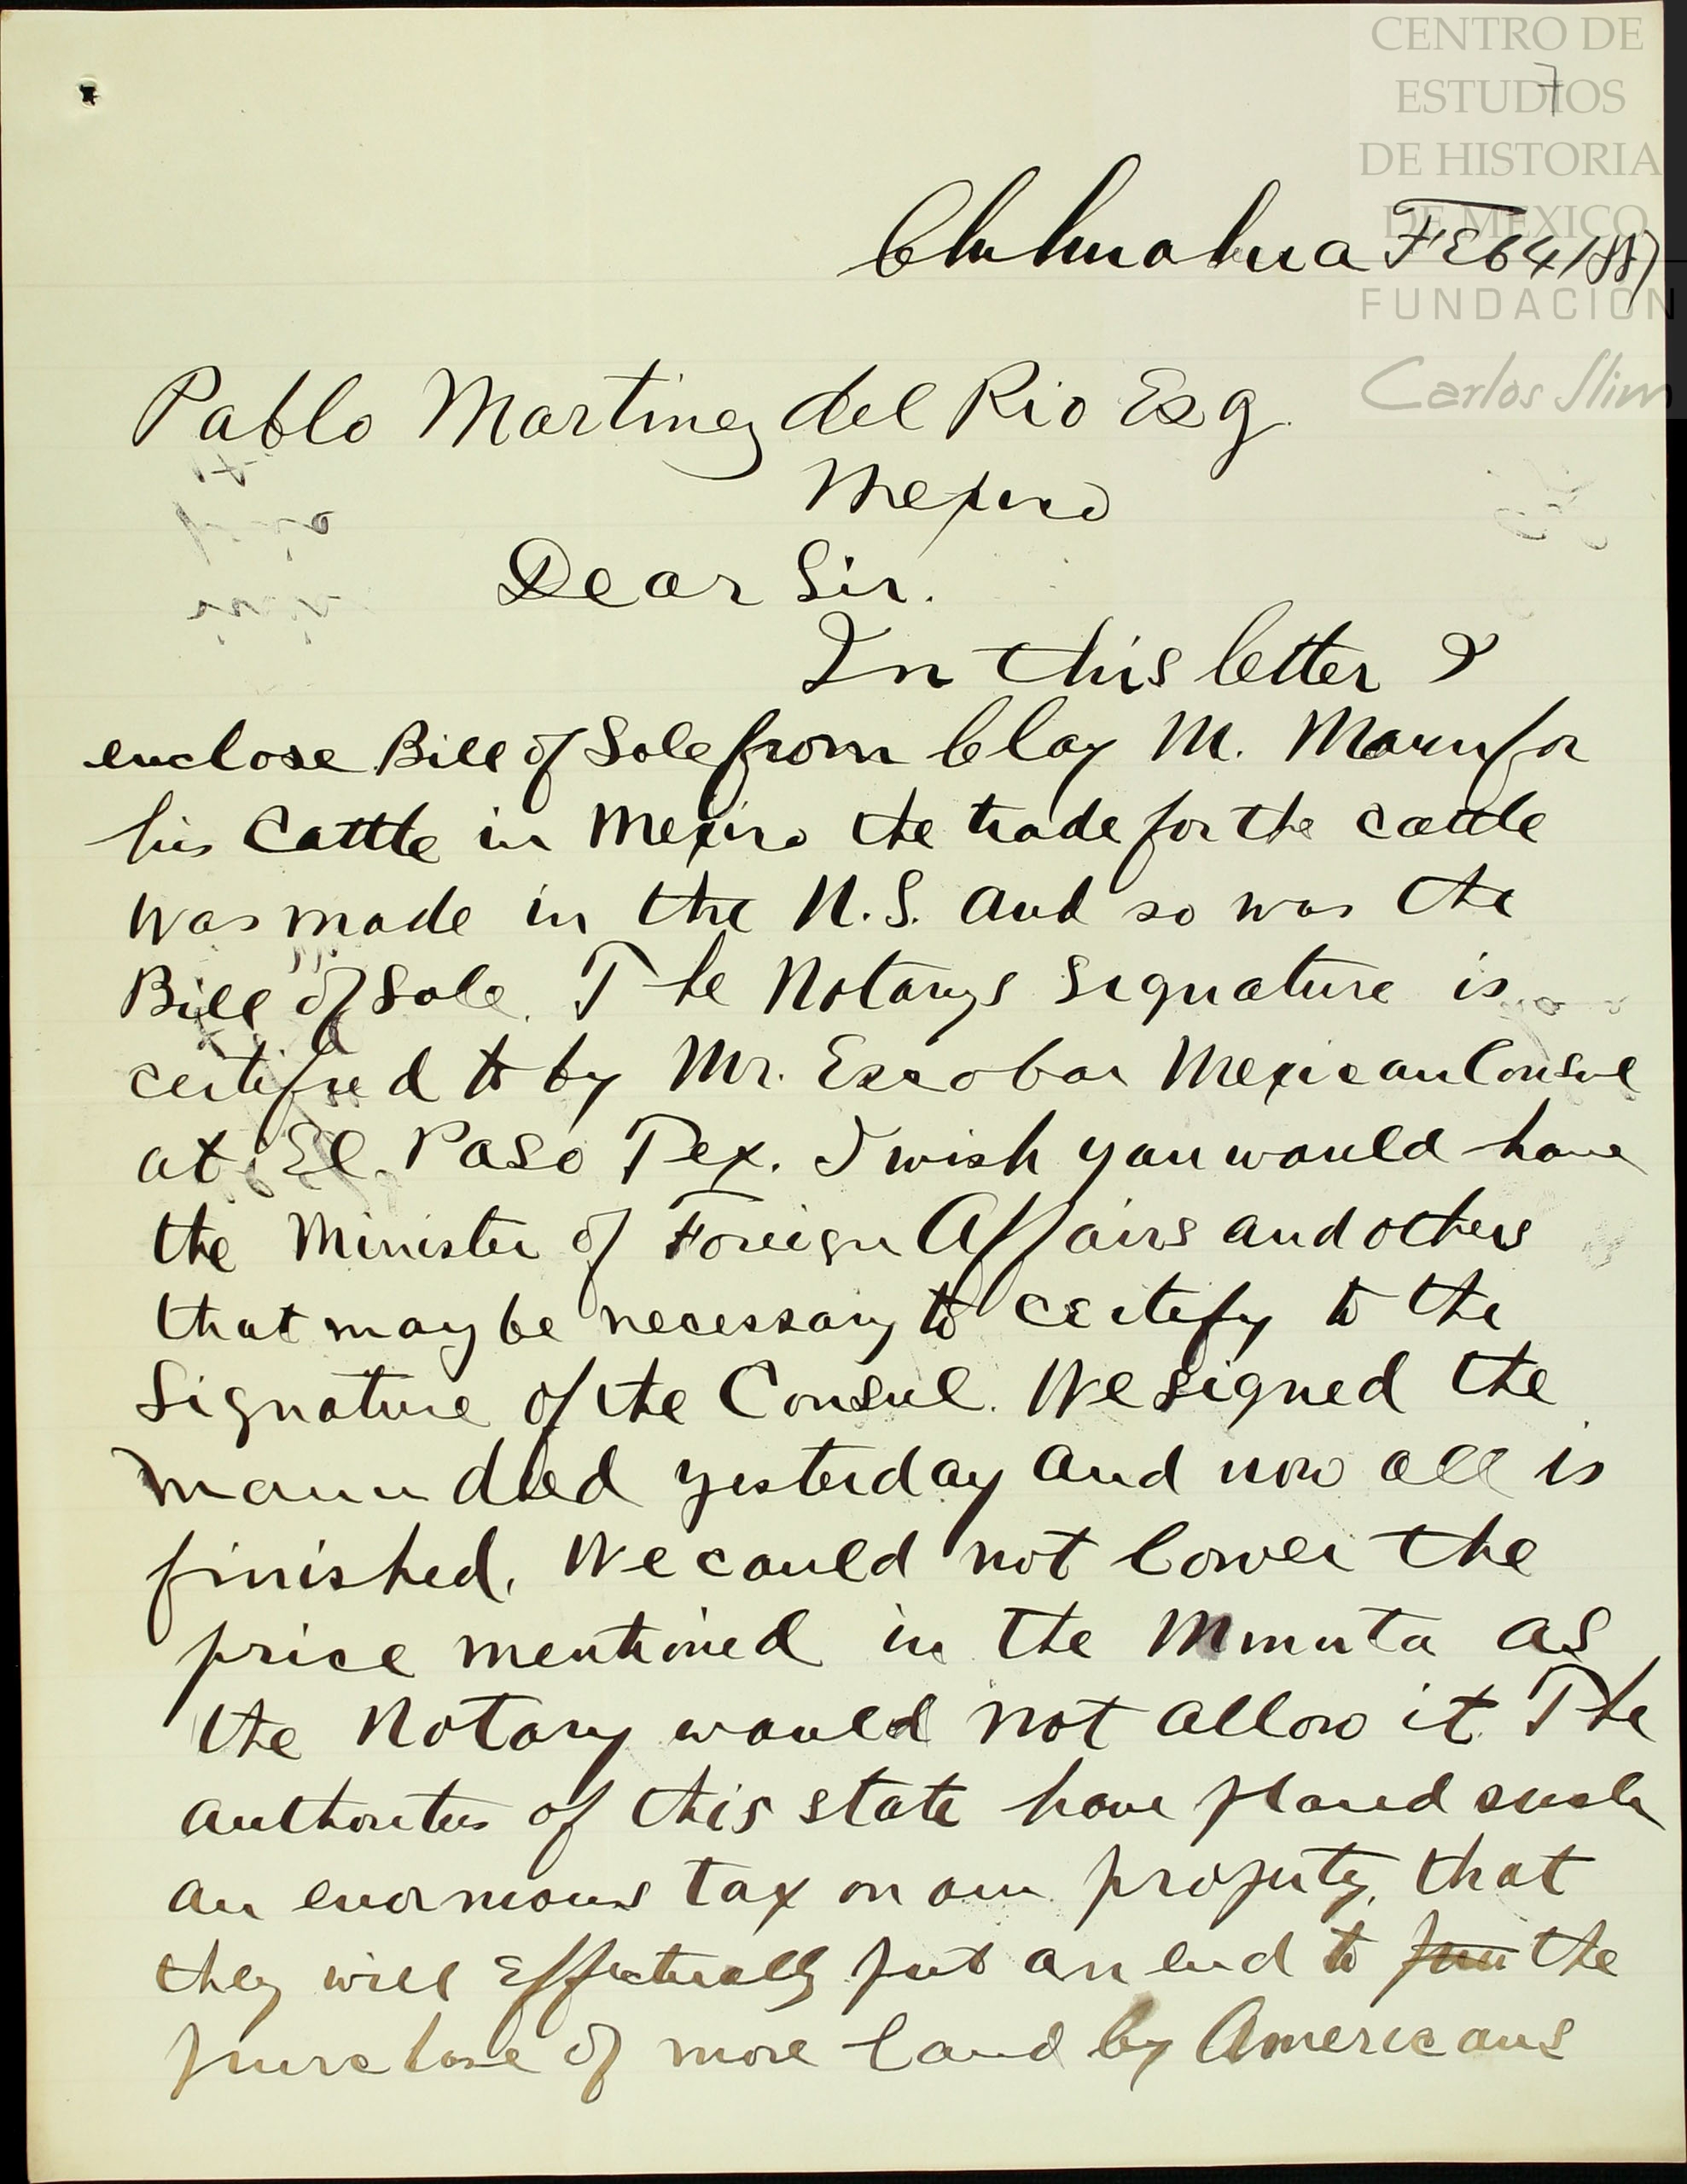 CENTRO DE
ESTUDIOS
DE HISTORIA
DE MEXICO
FUNDACIÓN
Carlos Slim
7
Chihuahua FEb 4/887
Pablo Martinez del Rio Esq.
Mexico
Dear Sir.
In this letter I
enclose Bill of Sale from Clay M. Mann for
his Cattle in Mexico the trade for the cattle
was made in the U.S. and so was the
Bill of Sale. The Notarys Signature is
certified to by Mr. Escobar Mexican Consul
at El Paso Tex. I wish you would have
the Minister of Foreign Affairs and others
that may be necessary to certify to the
Signature of the Consul. We signed the
Mann deed yesterday and now all is
finished. We could not lower the
price mentioned in the Minuta as
the Notary would not allow it. The
authorities of this state have placed such
an enormous tax on our property, that
they will effectually put an end to the
purchase of more land by Americans